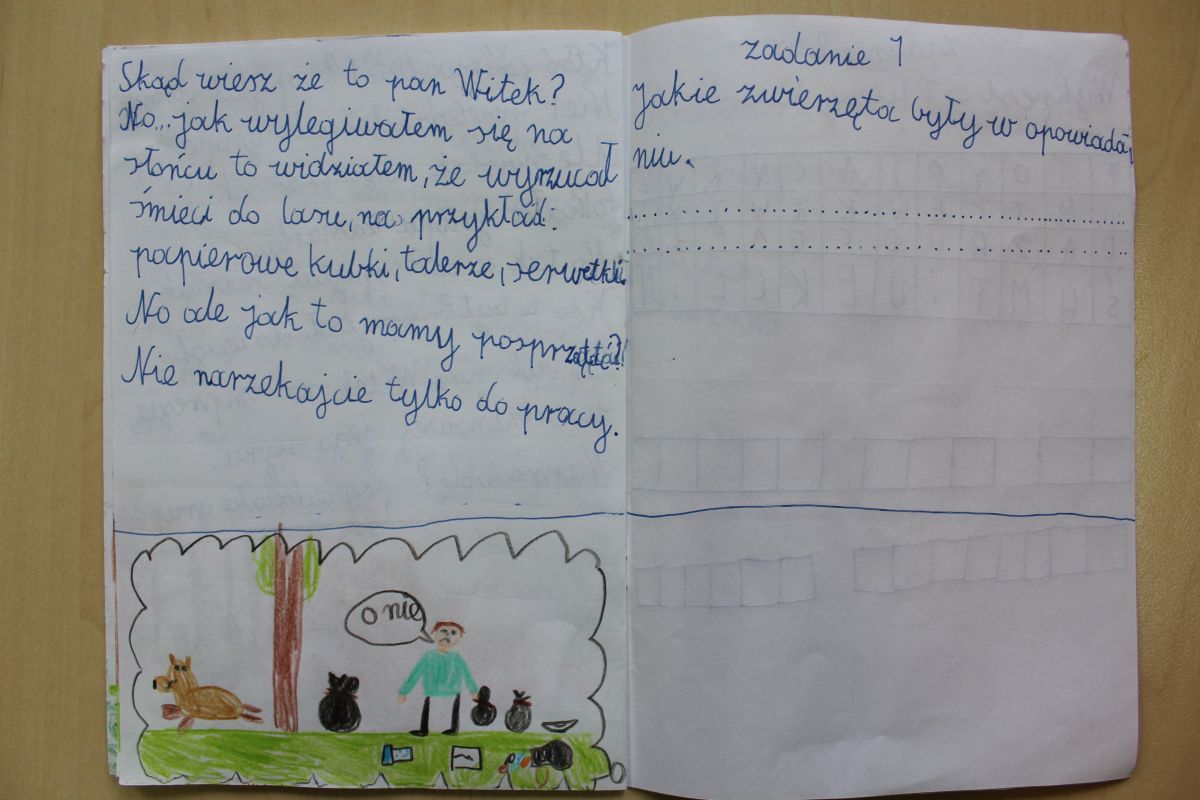 Skąd wiesz że to pan Witek?
No... jak wylegiwałem się na
słońcu to widziałem, że wyrzucał
śmieci do lasu, na przykład:
papierowe kubki, talerze, serwetki.
No ale jak to mamy posprzątać?!
Nie narzekajcie tylko do pracy.
O nie
zadanie 1
jakie zwierzęta były w opowiada
niu.